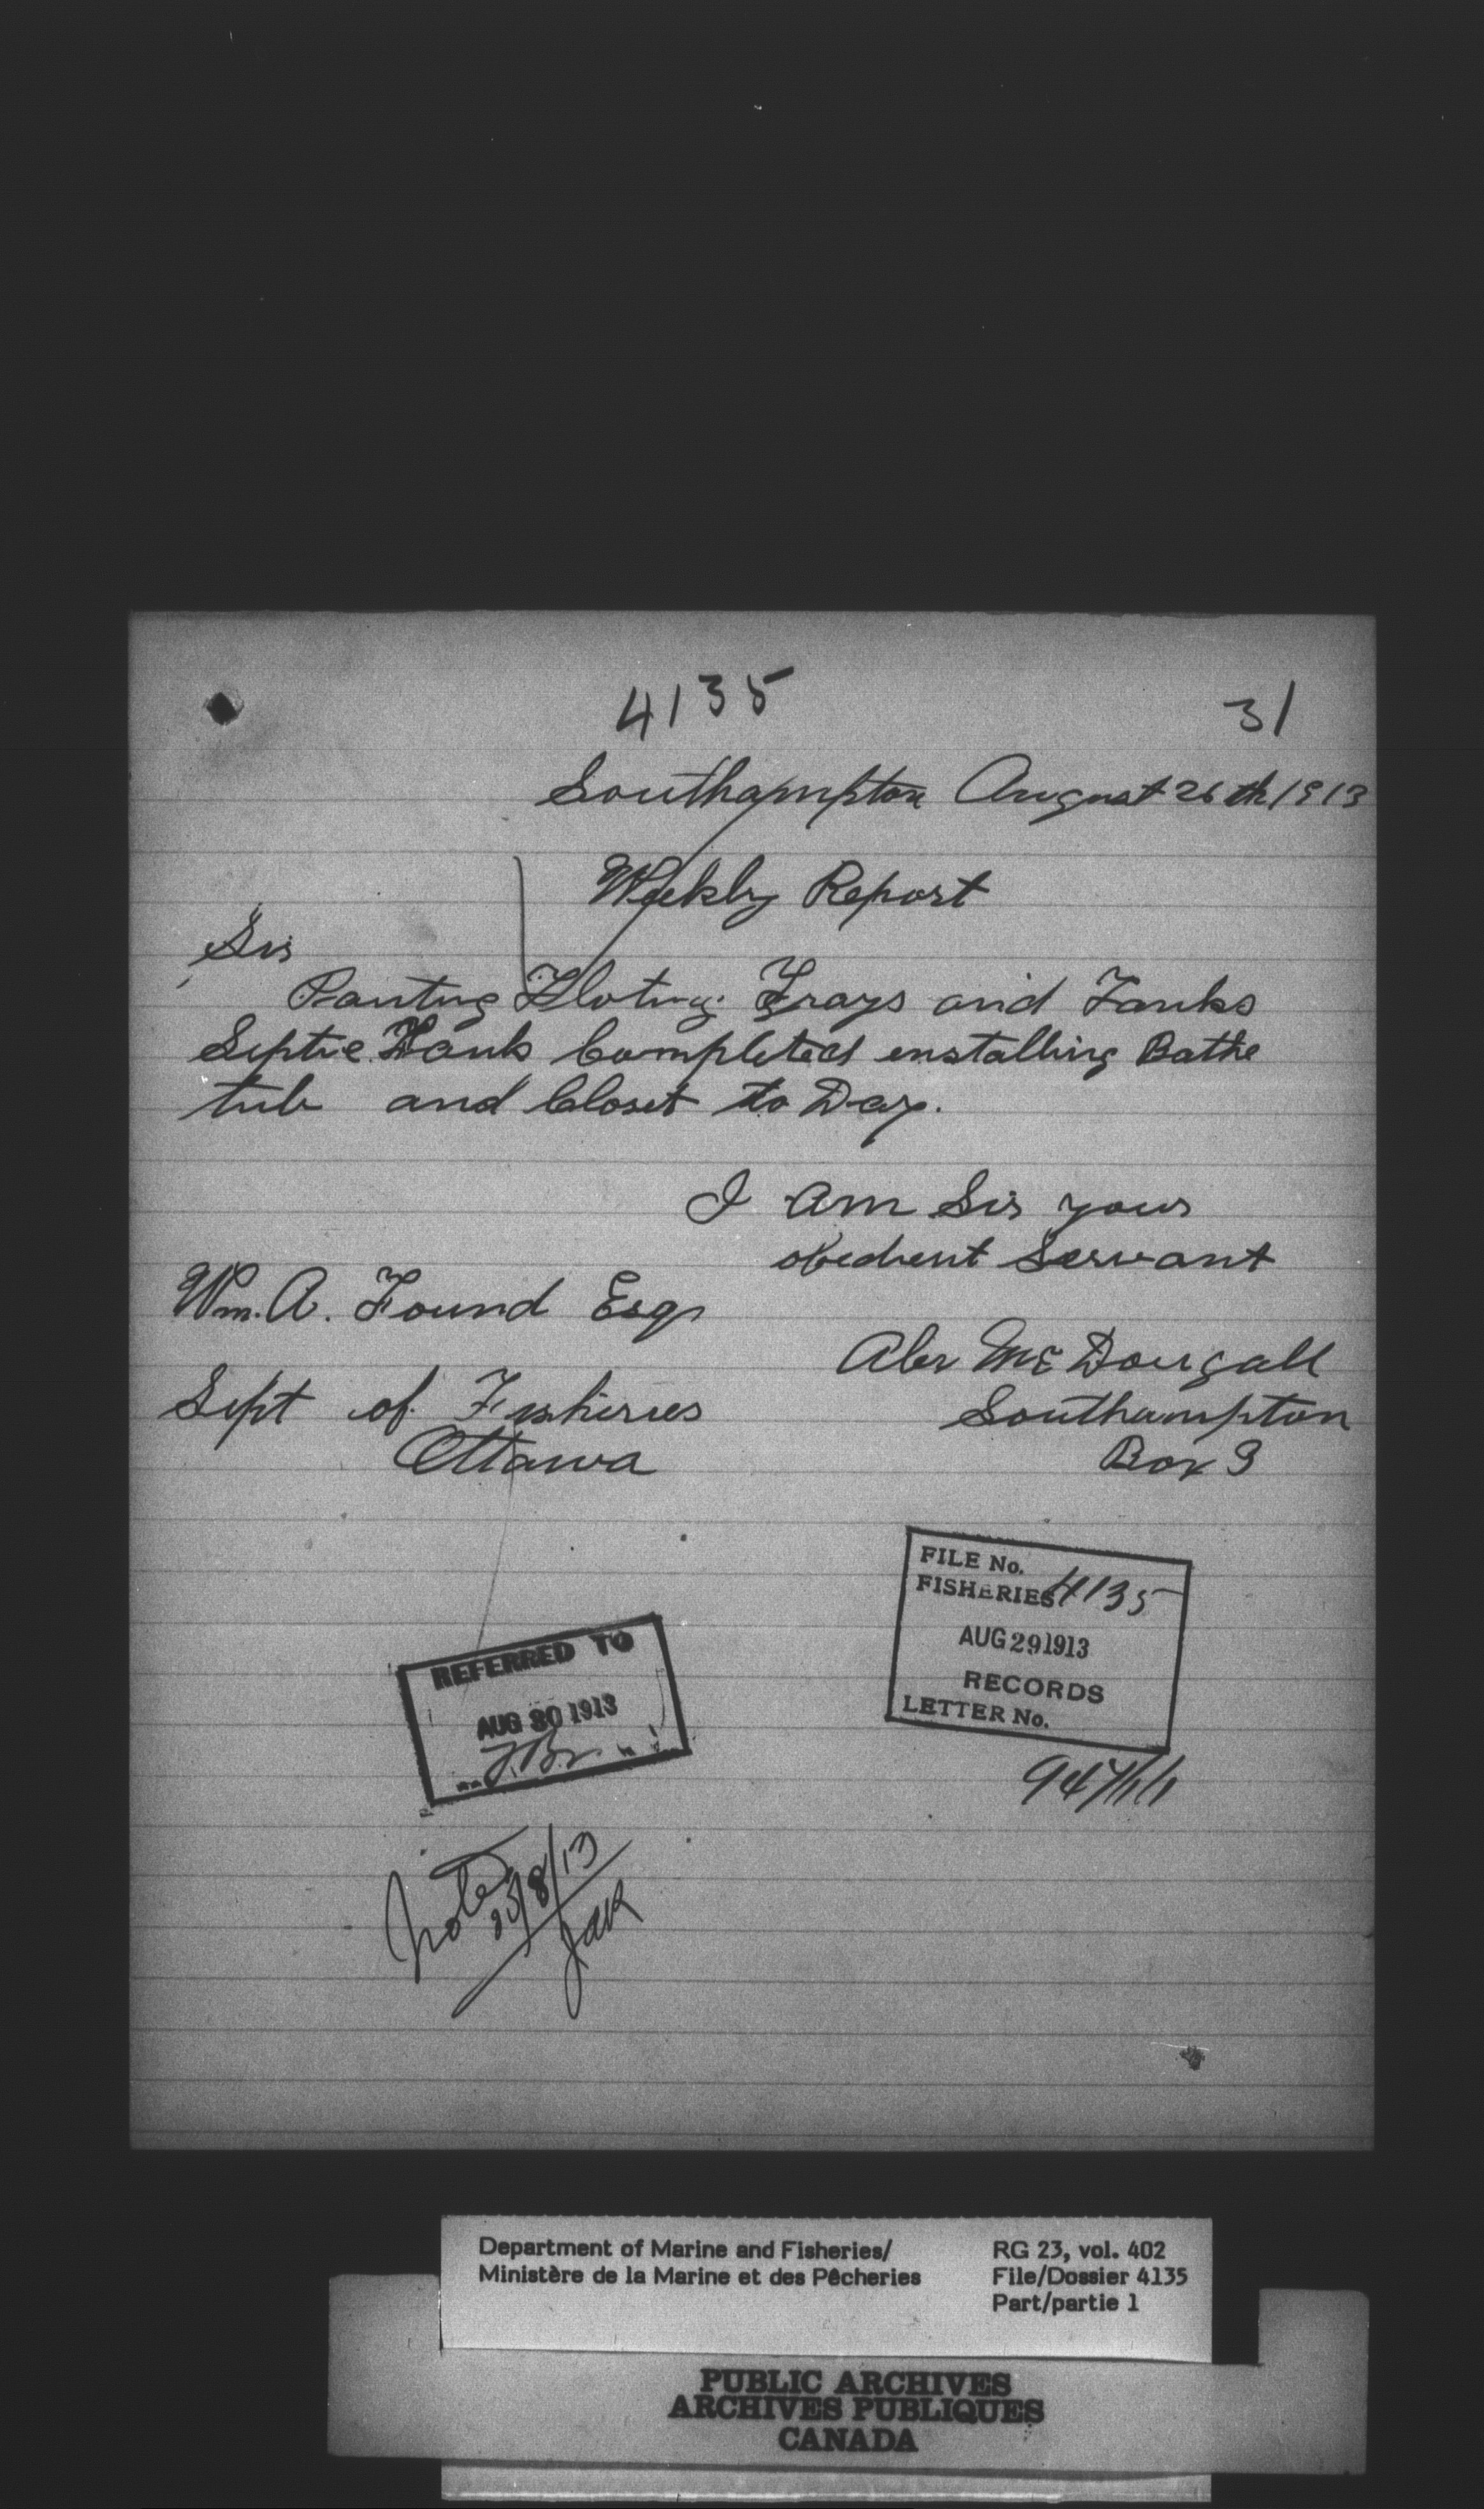 4135
31
Southampton August 26th 1913
Weekly Report
Sir
Panting Floting Trays and Tanks
Septic Tank Completed enstalling Bathe
tub and Closet to Day.
I am Sir your
obedient Servant
Wm. A. Found Esqr
Alex McDougall
Supt of Fisheries
Southampton
Ottawa
Box 3
FILE No.
FISHERIES 4135
AUG 29 1913
RECORDS
LETTER No.
REFERRED TO
AUG 30 1913
Noted
/8/13
JAR
Department of Marine and Fisheries/
Ministère de la Marine et des Pêcheries
RG 23, vol. 402
File/Dossier 4135
Part/partie 1
PUBLIC ARCHIVES
ARCHIVES PUBLIQUES
CANADA